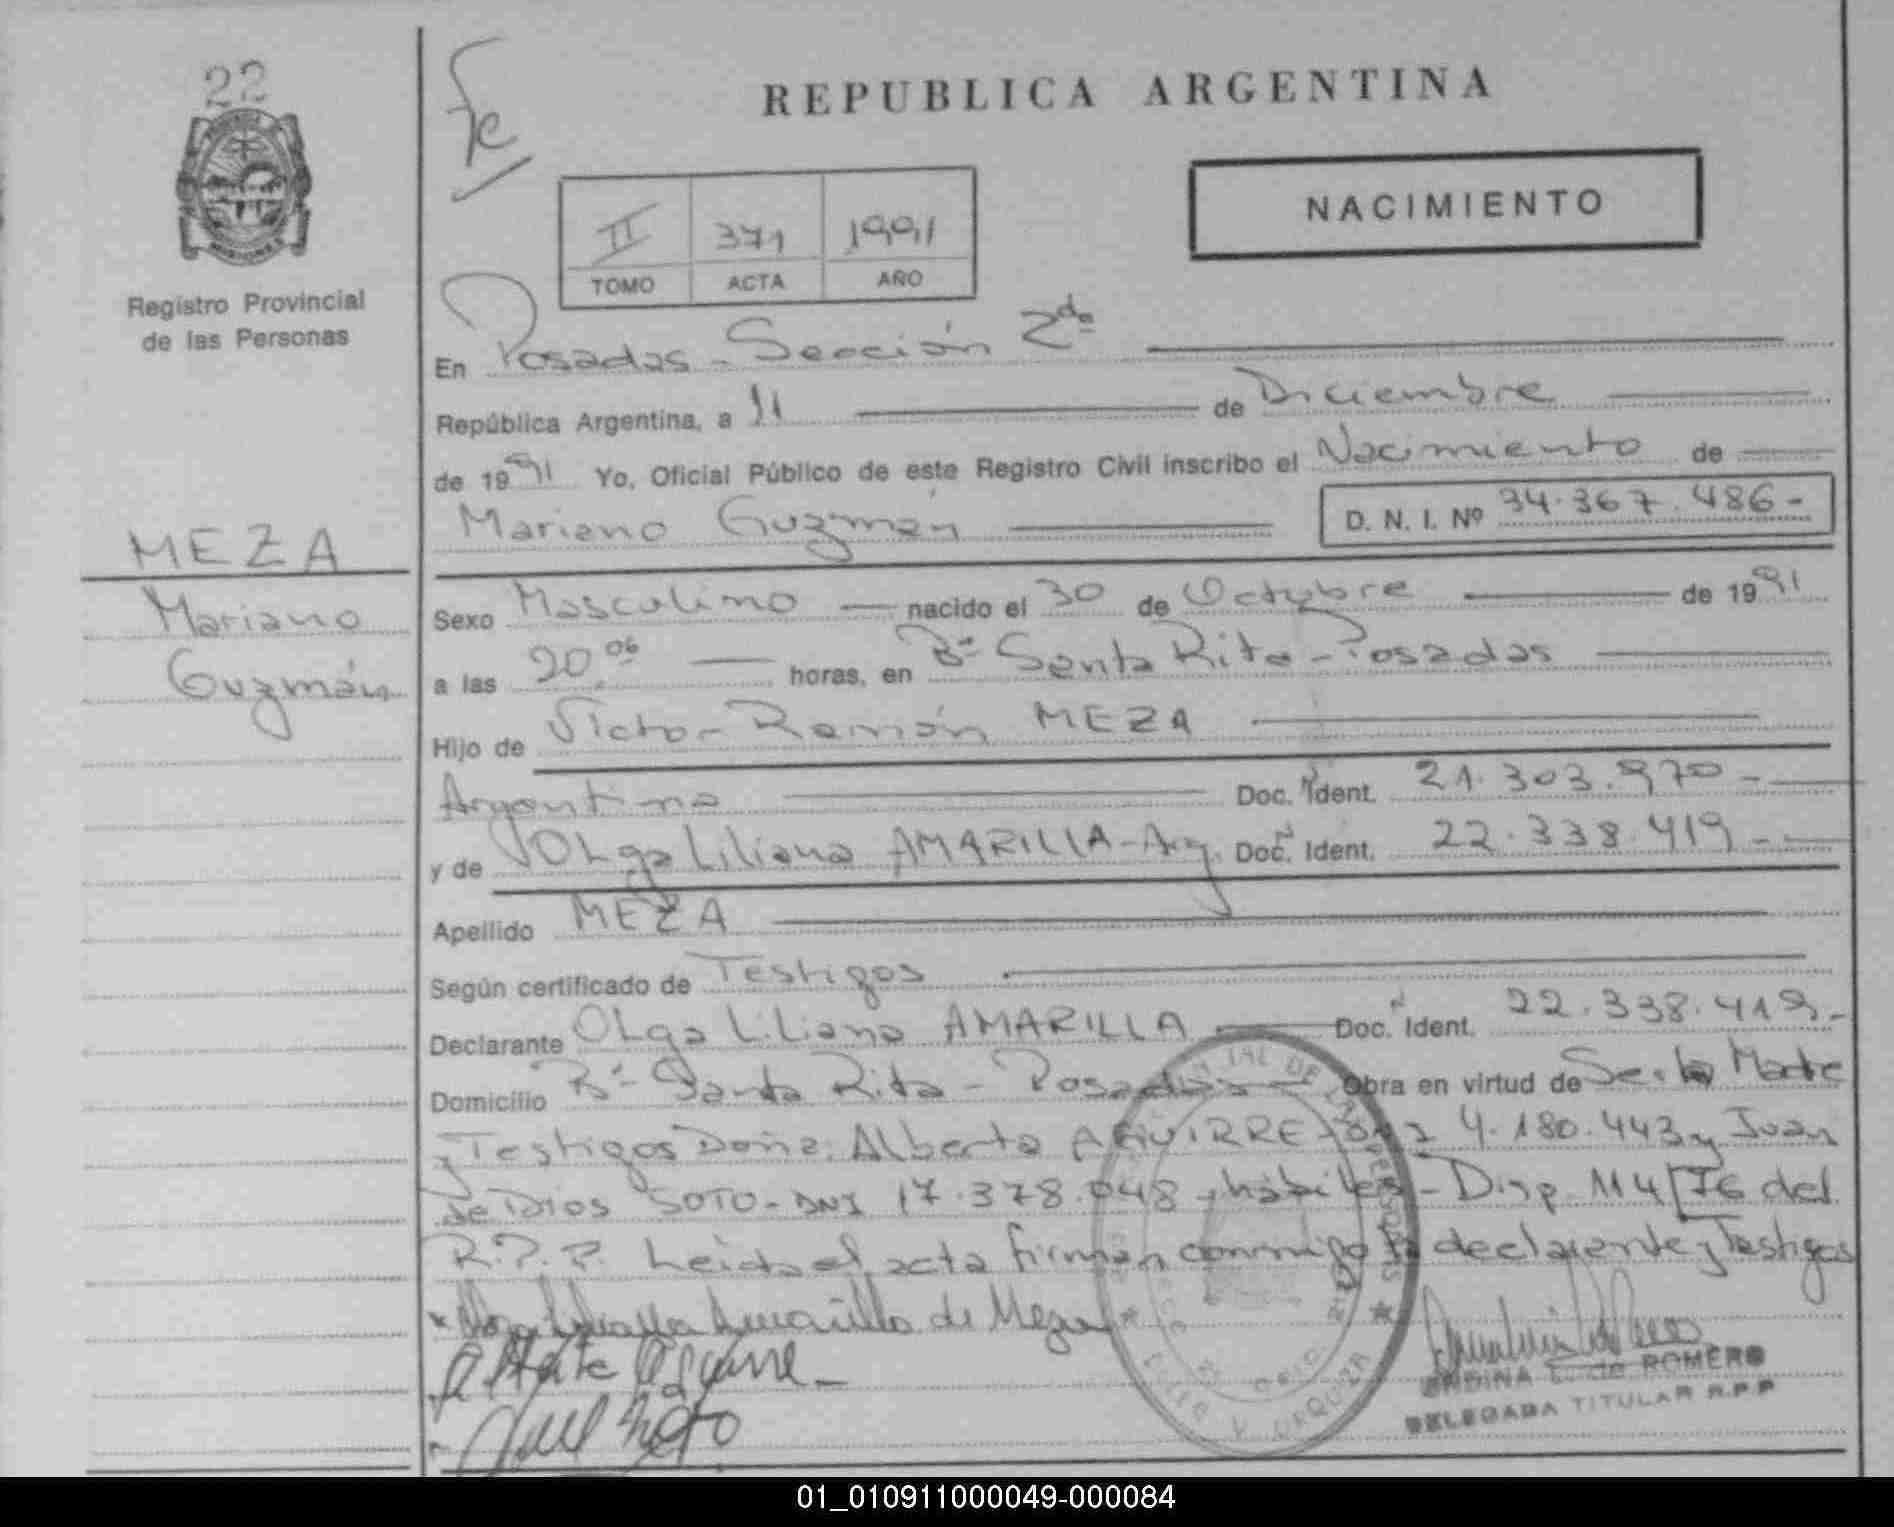 22
Registro Provincial
de las Personas
REPUBLICA ARGENTINA
NACIMIENTO
II 371 1991
TOMO ACTA AÑO
En Posadas - Sección 2da
República Argentina, a 11 de Diciembre
de 1991 Yo, Oficial Público de este Registro Civil inscribo el Nacimiento de
Mariano Guzmán D. N. I. Nº 34.367.486-
MEZA
Mariano
Guzmán
Sexo Masculino nacido el 30 de Octubre de 1991
a las 20.06 horas, en Bº Santa Rita - Posadas
Hijo de Victor Ramón MEZA
Argentino Doc. Ident. 21.303.970-
y de Olga Liliana AMARILLA - Arg. Doc. Ident. 22.338.419-
Apellido MEZA
Según certificado de Testigos
Declarante Olga Liliana AMARILLA Doc. Ident. 22.338.419-
Domicilio Bº Santa Rita - Posadas Obra en virtud de ser la Madre
y Testigos Doña Alberta AGUIRRE 4.180.443 y Juan
de Dios SOTO - DNI 17.378.048, hábiles - Disp. 114/76 del
R.P.P. Leida el acta firman conmigo la declarante y Testigos
Amarilla de Meza
Aguirre
ROMERO
DELEGADA TITULAR R.P.P
01_010911000049-000084